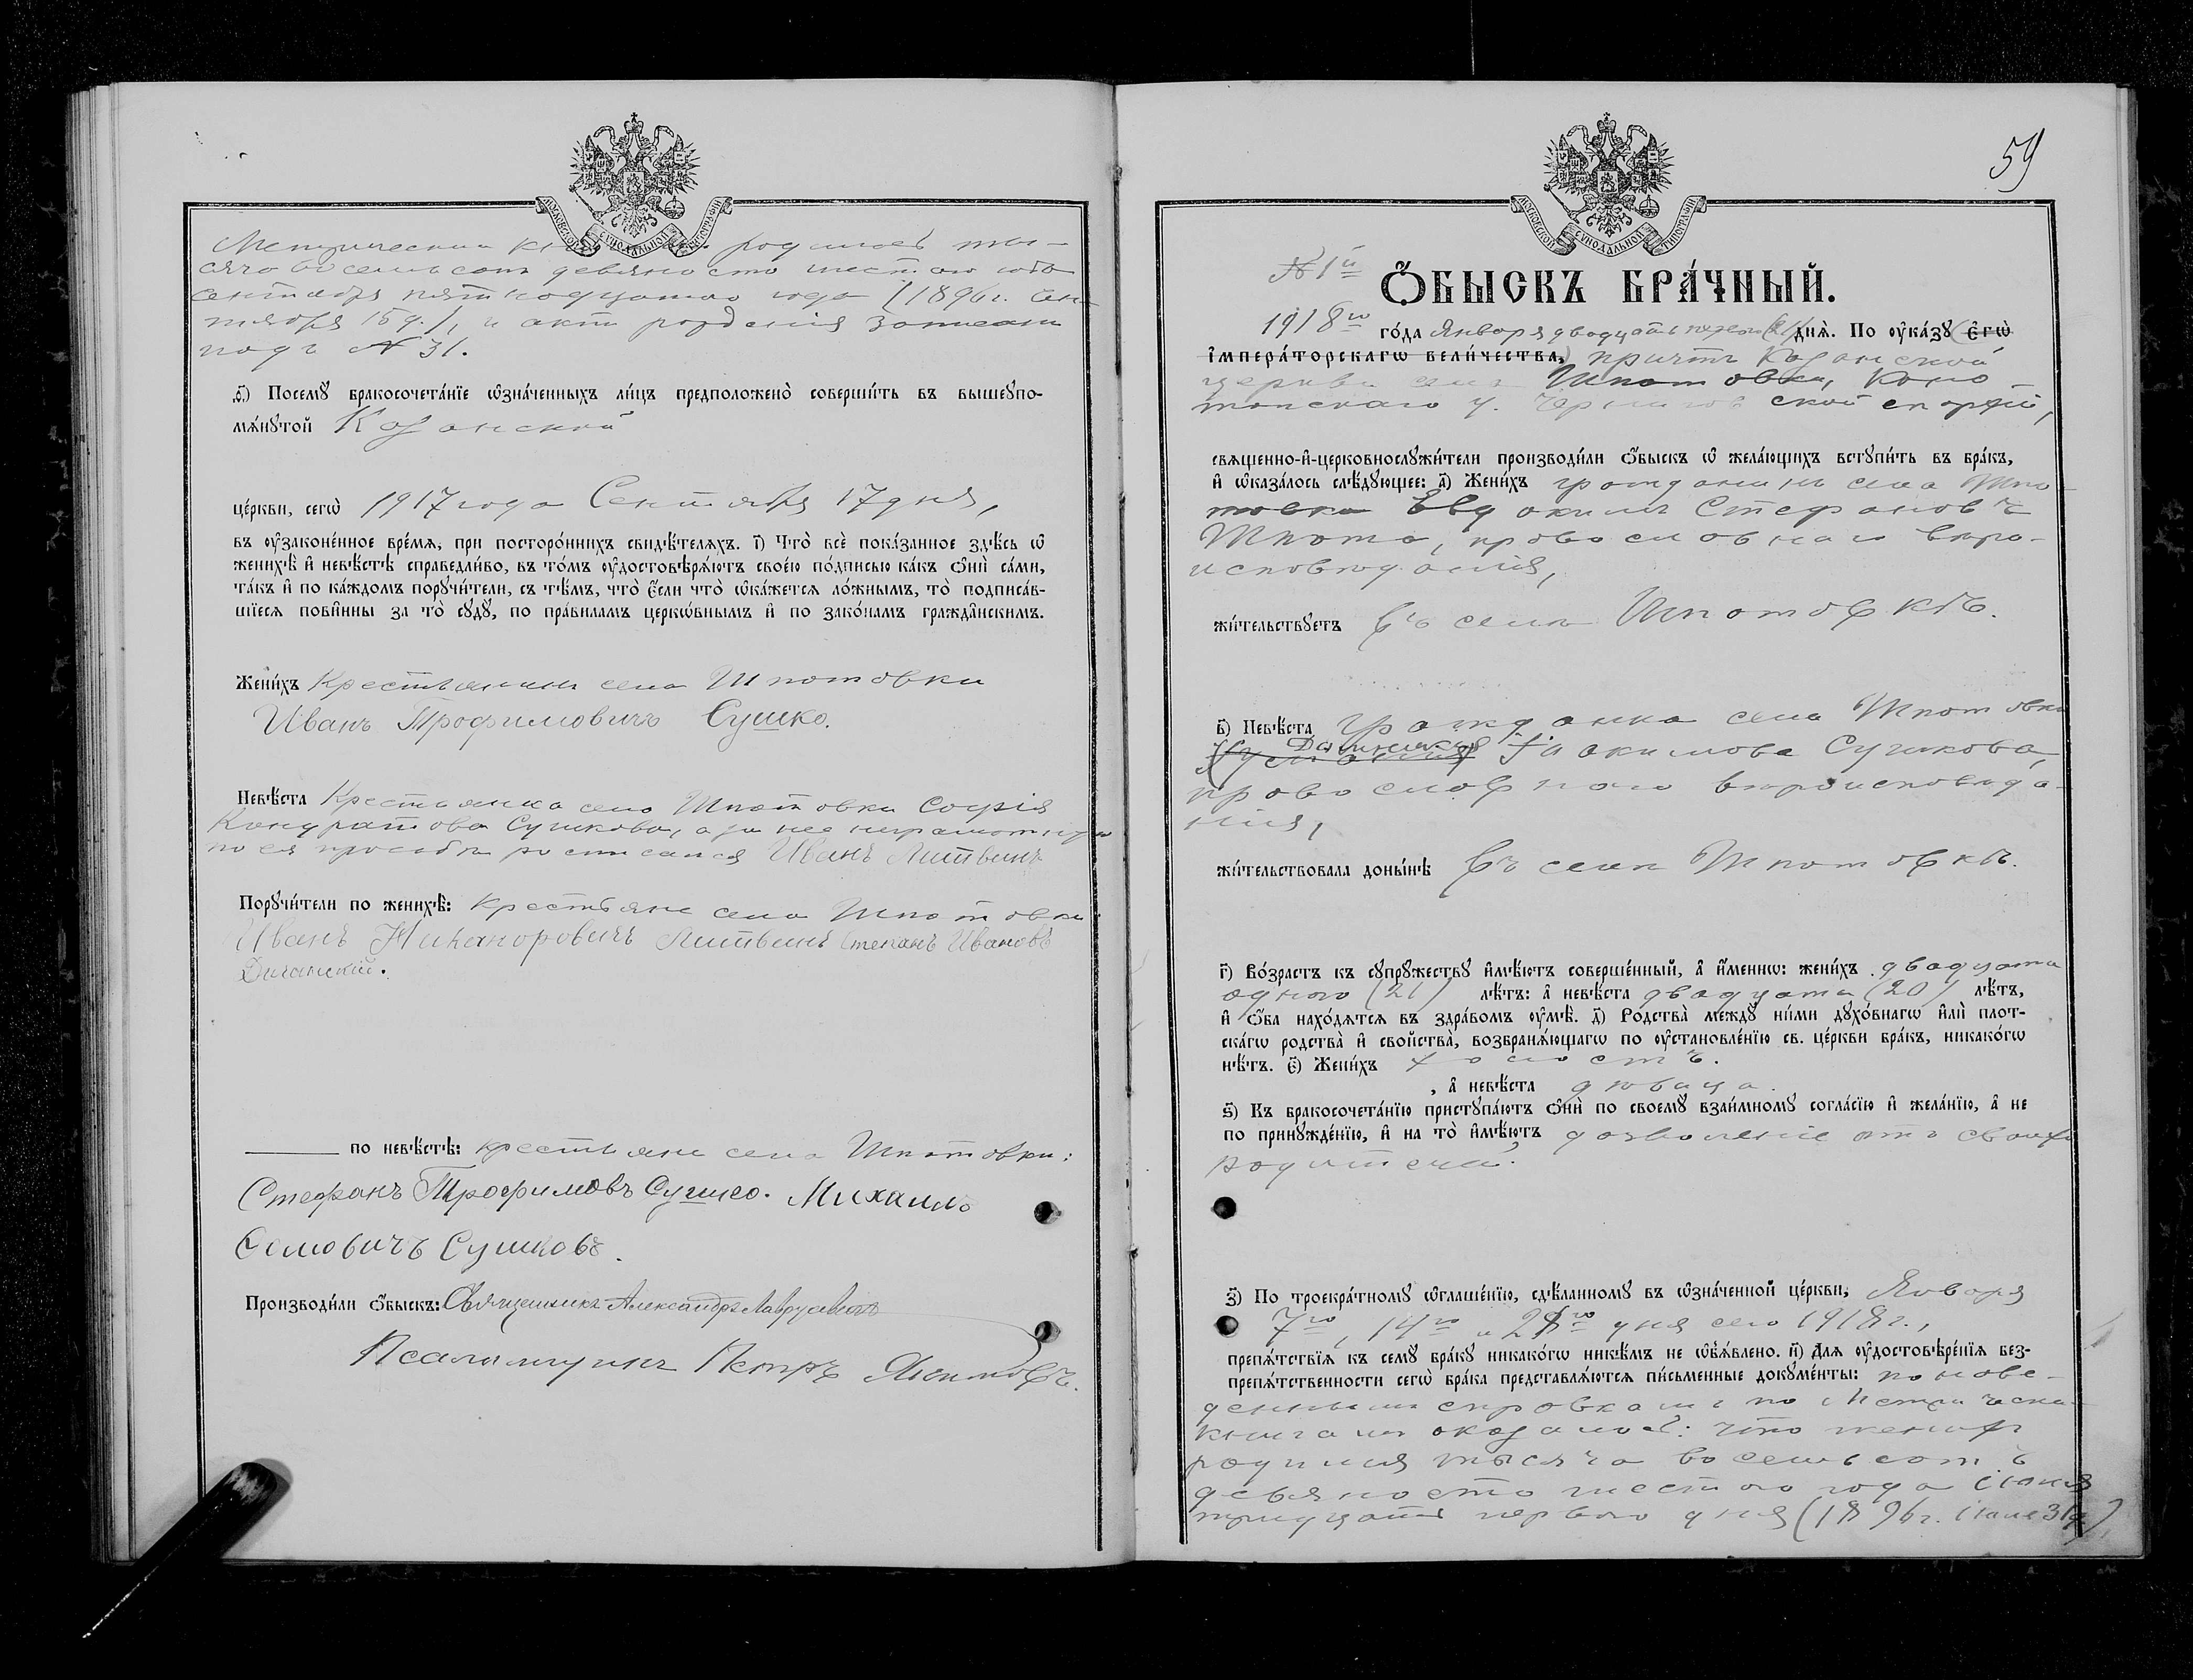 МОСКОВСКОЙ СУНОДАЛЬНОЙ ТИПОГРАФІИ
Метрическим родилась ты-
сяча восемьсотъ девяносто шестого года
сентября пятнадцатаго года (1896 г. Сен-
тября 15 д.), и актъ рожденія записанъ
подъ № 31.
Посемꙋ̀ бракосочета́нїе ѡ҆зна́ченныхъ ли́цъ предположено̀ соверши́ть въ вышеꙋпо-
мѧ́нꙋтой Казанской
це́ркви, сегѡ̀ 1917 года Сентября 17 дня,
въ ᲂу҆зако́ненное вре́мѧ, при посторо́ннихъ свидѣ́телѧхъ. і҃) Что̀ всѐ пока́занное здѣ́сь ѡ҆
женихѣ̀ и҆ невѣ́стѣ справедли́во, въ то́мъ ᲂу҆достовѣрѧ́ютъ свое́ю по́дписью ка́къ ѻ҆нѝ са́ми,
та́къ и҆ по ка́ждомъ порꙋчи́тели, съ тѣ́мъ, что̀ є҆́сли что̀ ѡ҆ка́жетсѧ ло́жнымъ, то̀ подписа́в-
шїесѧ пови́нны за то̀ сꙋдꙋ̀, по пра́виламъ церко́внымъ и҆ по зако́намъ гражда́нскимъ.
Жени́хъ Крестьянинъ села Шпотовки
Иванъ Трофимовичъ Сушко.
Невѣ́ста Крестьянка села Шпотовки Софія
Кондратова Сушкова, а за нее неграмотную
по ея просьбѣ росписался Иванъ Литвинъ
Порꙋчи́тели по женихѣ̀: Крестьяне села Шпотовки
Иванъ Никаноровичъ Литвинъ Степанъ Ивановъ
по невѣ́стѣ: крестьяне села Шпотовки:
Стефанъ Трофимовъ Сушко. Михаилъ
Сушковъ.
Производи́ли ѻ҆́быскъ: Священникъ Александръ
Псаломщикъ Петръ
59
МОСКОВСКОЙ СУНОДАЛЬНОЙ ТИПОГРАФІИ
№ 1й
Ѻ҆́БЫСКЪ БРА́ЧНЫЙ.
1918го го́да Января двадцать дня̀. По ᲂу҆ка́зꙋ є҆гѡ̀
і҆мпера́торскагѡ вели́чества, причтъ Казанской
церкви села Шпотовки, Коно-
топскаго у. Черниговской епархіи,
свѧще́нно-и҆-церковнослꙋжи́тели производи́ли ѻ҆́быскъ ѡ҆ жела́ющихъ встꙋпи́ть въ бра́къ,
и҆ ѡ҆каза́лось слѣ́дꙋющее: а҃) Жени́хъ гражданинъ села Шпо-
товки Евдокимъ Стефановъ
Шпота, православнаго вѣро-
исповѣданія,
жи́тельствꙋетъ въ селѣ Шпотовкѣ.
в҃) Невѣ́ста гражданка села Шпотовки
Іоакимова Сушкова,
православнаго вѣроисповѣда-
нія,
жи́тельствовала доны́нѣ въ селѣ Шпотовкѣ.
г҃) Во́зрастъ къ сꙋпрꙋ́жествꙋ и҆мѣ́ютъ соверше́нный, а҆ и҆́меннѡ: жени́хъ двадцати
одного (21) лѣ́тъ: а҆ невѣ́ста двадцати (20) лѣ́тъ,
и҆ ѻ҆́ба нахо́дѧтсѧ въ здра́вомъ ᲂу҆мѣ̀. д҃) Родства̀ междꙋ̀ ни́ми дꙋхо́внагѡ и҆лѝ плот-
ска́гѡ родства̀ и҆ сво́йства, возбранѧ́ющагѡ по ᲂу҆становле́нїю св. це́ркви бра́къ, никако́гѡ
нѣ́тъ. є҃) Жени́хъ холостъ.
, а҆ невѣ́ста дѣвица.
ѕ҃) Къ бракосочета́нїю пристꙋпа́ютъ ѻ҆нѝ по своемꙋ̀ взаи́мномꙋ согла́сїю и҆ жела́нїю, а҆ не
по принꙋжде́нїю, и҆ на то̀ и҆мѣ́ютъ дозволеніе отъ своихъ
родителей.
з҃) По троекра́тномꙋ ѡ҆глаше́нїю, сдѣ́ланномꙋ въ ѡ҆зна́ченной це́ркви, Января
7го, 14го и дня сего 1918 г.,
препѧ́тствїѧ къ семꙋ̀ бра́кꙋ никако́гѡ никѣ́мъ не ѡ҆б̾ѧ́влено. и҃) Длѧ ᲂу҆достовѣре́нїѧ без-
препѧ́тственности сегѡ̀ бра́ка представлѧ́ютсѧ пи́сьменные докꙋме́нты: по наве-
деннымъ справкамъ по Метрическ.
книгамъ оказалось: что женихъ
родился тысяча восемьсотъ
девяносто шестого года іюля
тридцать перваго дня (1896 г. іюля 31 д.),